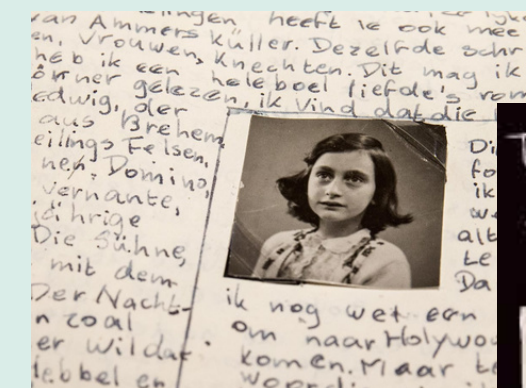 van Ammers küller. Dezelfde schr
en, Vrouwen, Knechten. Dit mag ik
heb ik een heleboel liefde's rom
örner gelezen, ik vind dat die
edwig, der
aus Brehem
eilings Felsen,
nen, Domino,
vernante,
jährige
Die Sühne,
mit dem
Der Nacht-
n zoal
er wildat
Hebbel en
Di
fo
ik
we
alt
te
Da
ik nog wel een
om naar Holywo
komen. Maar te